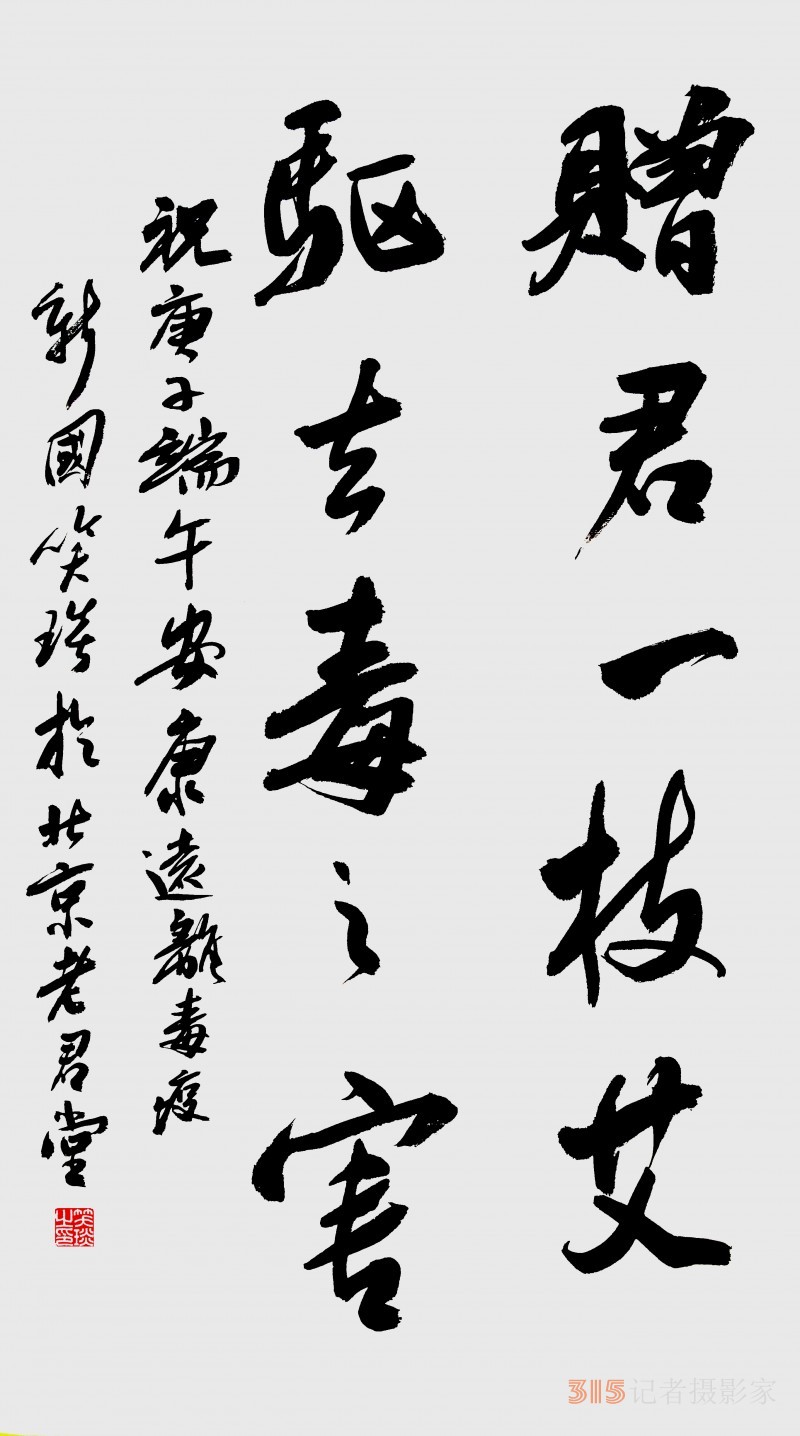 贈君一枝艾
驅去毒之害
祝庚子端午安康遠離毒疫
新國笑琰於北京老君堂
笑琰之印
315记者摄影家